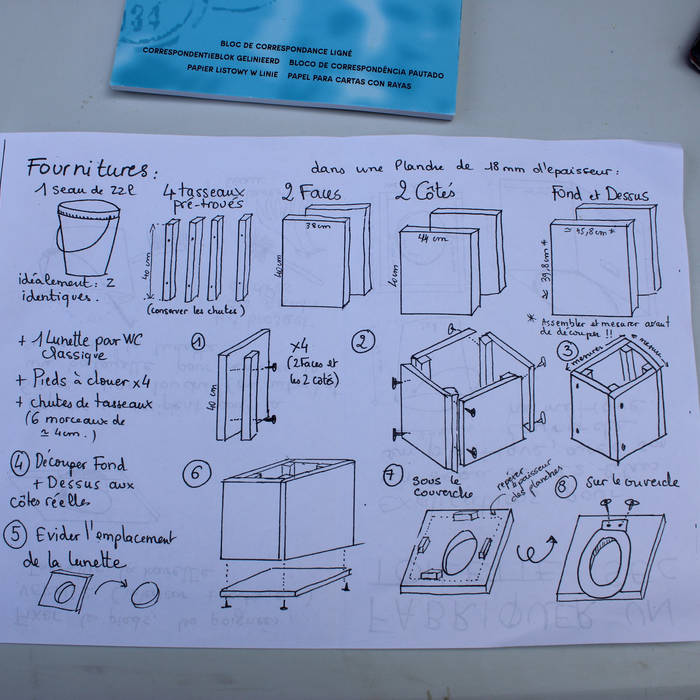 BLOC DE CORRESPONDANCE LIGNÉ
CORRESPONDENTIEBLOK GELINIEERD BLOCO DE CORRESPONDÊNCIA PAUTADO
PAPIER LISTOWY W LINIE PAPEL PARA CARTAS CON RAYAS
Fournitures:
dans une Planche de 18mm d'épaisseur:
1 seau de 22l
4 tasseaux
pré-troués
2 Faces
2 Côtés
Fond et Dessus
38cm
44 cm
≃ 45,8cm *
40 cm
40cm
40cm
≃ 39,8cm *
idéalement: 2
identiques.
(conserver les chutes)
* Assembler et mesurer avant
de découper !!
+ 1 Lunette pour WC
classique
+ Pieds à clouer x4
+ chutes de tasseaux
(6 morceaux de
≃ 4cm.)
1
40 cm
x4
(2 Faces et
les 2 côtés)
2
3
mesurer
mesurer
4 Découper Fond
+ Dessus aux
côtes réelles
5 Evider l'emplacement
de la lunette
6
7 Sous le
couvercle
repérer épaisseur
des planches
8 Sur le couvercle